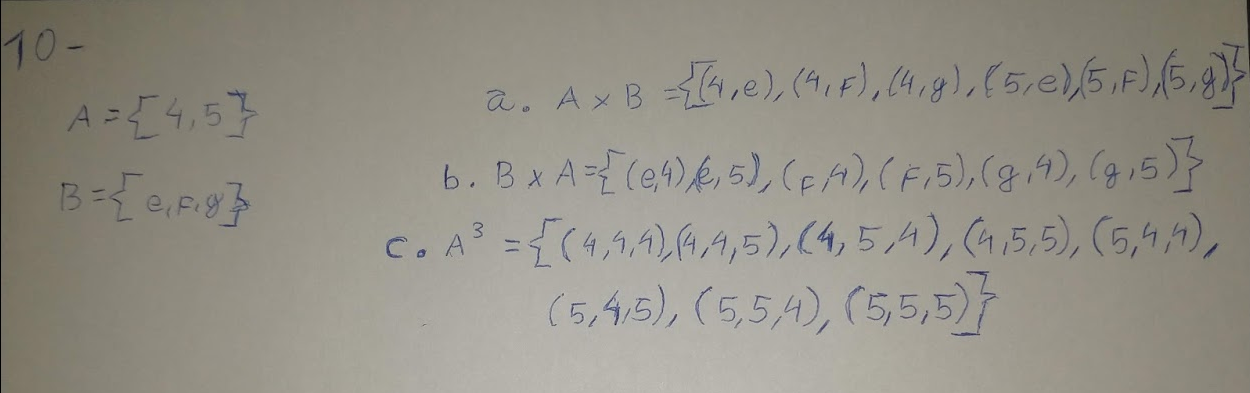 10-
A = {4,5}
B = {e,F,g}
a. A x B = {(4,e), (4,F), (4,g), (5,e), (5,F), (5,g)}
b. B x A = {(e,4), (e,5), (F,4), (F,5), (g,4), (g,5)}
c. A³ = {(4,4,4), (4,4,5), (4,5,4), (4,5,5), (5,4,4),
(5,4,5), (5,5,4), (5,5,5)}